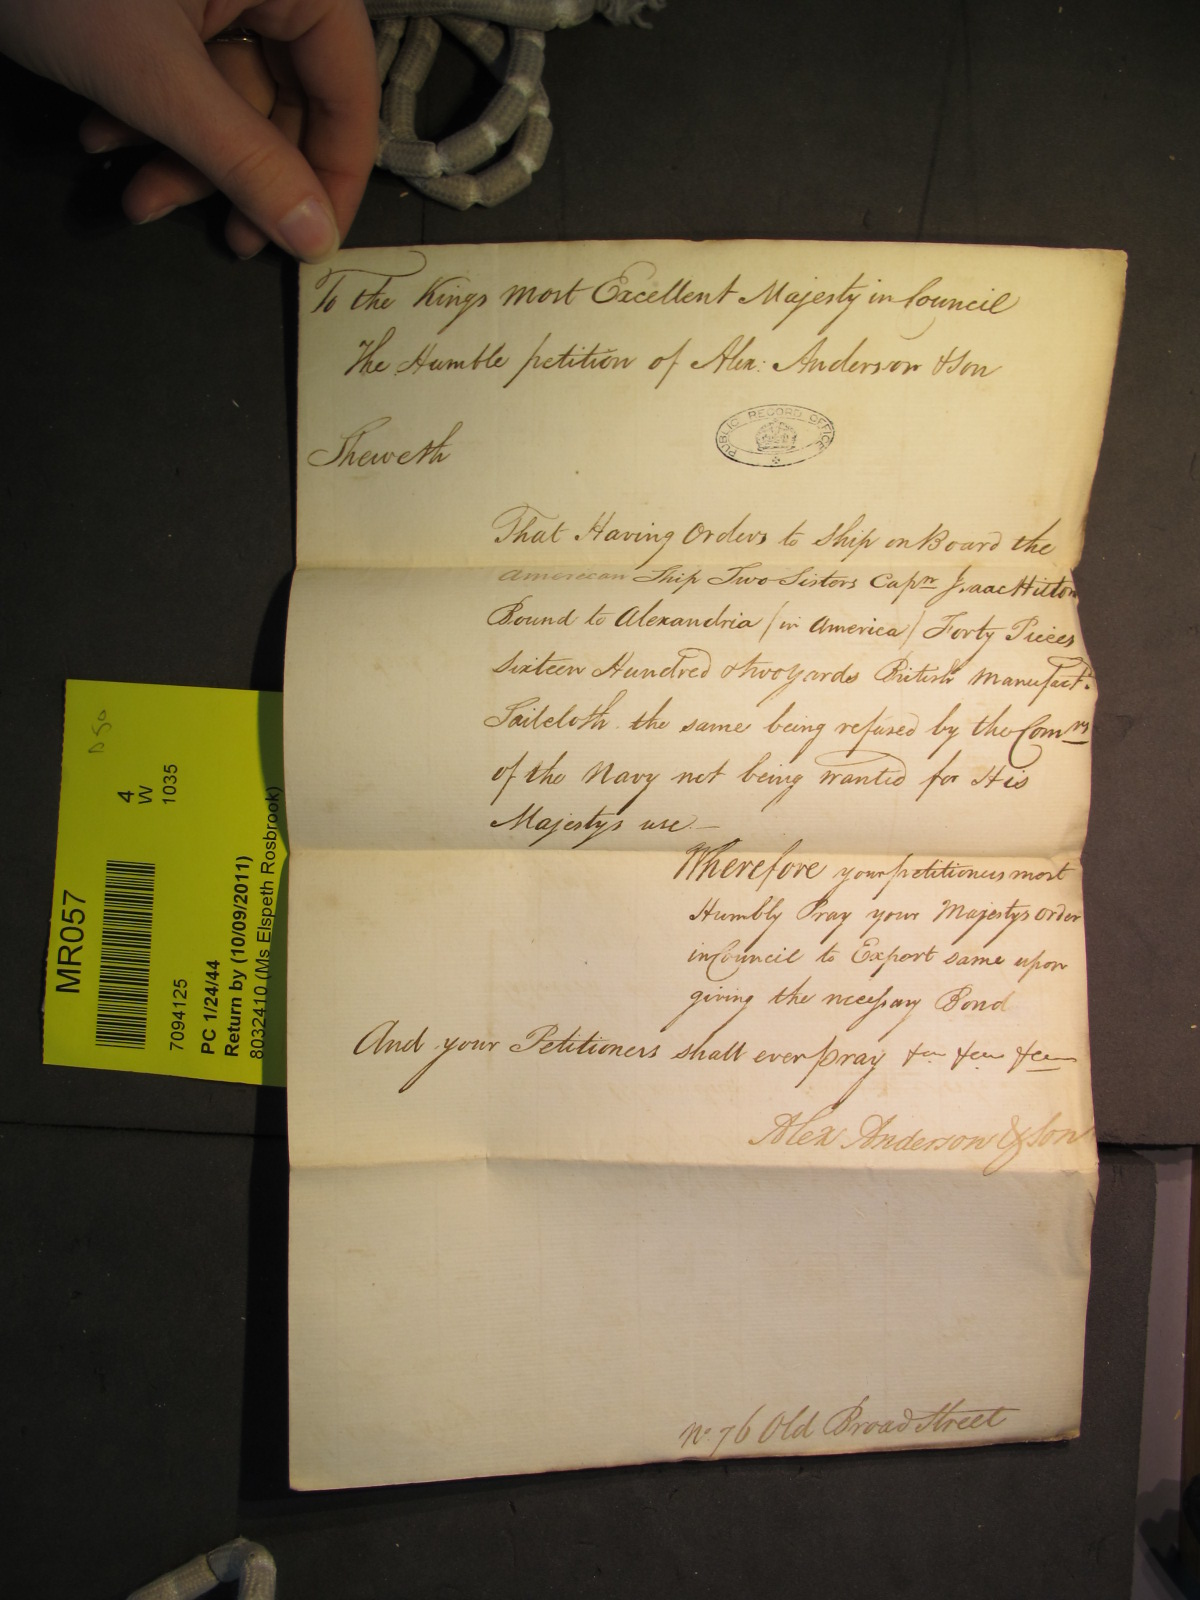 To the Kings most Excellent Majesty in Council
The Humble petition of Alex: Anderson & Son
PUBLIC RECORD OFFICE
Sheweth
That Having Orders to Ship on Board the
American Ship Two Sisters Capn Isaac Hilton
Bound to Alexandria / in America / Forty Pieces
Sixteen Hundred & two yards British Manufact:
Sailcloth the same being refused by the Comrs
of the Navy not being wanted for His
Majestys use —
Wherefore your petitioners most
Humbly Pray your Majestys order
in Council to Export same upon
giving the necessary Bond
And your Petitioners shall ever pray &c &c &c
Alex Anderson & Son
No 76 Old Broad Street
D50
MR057
4
W
1035
7094125
PC 1/24/44
Return by (10/09/2011)
8032410 (Ms Elspeth Rosbrook)